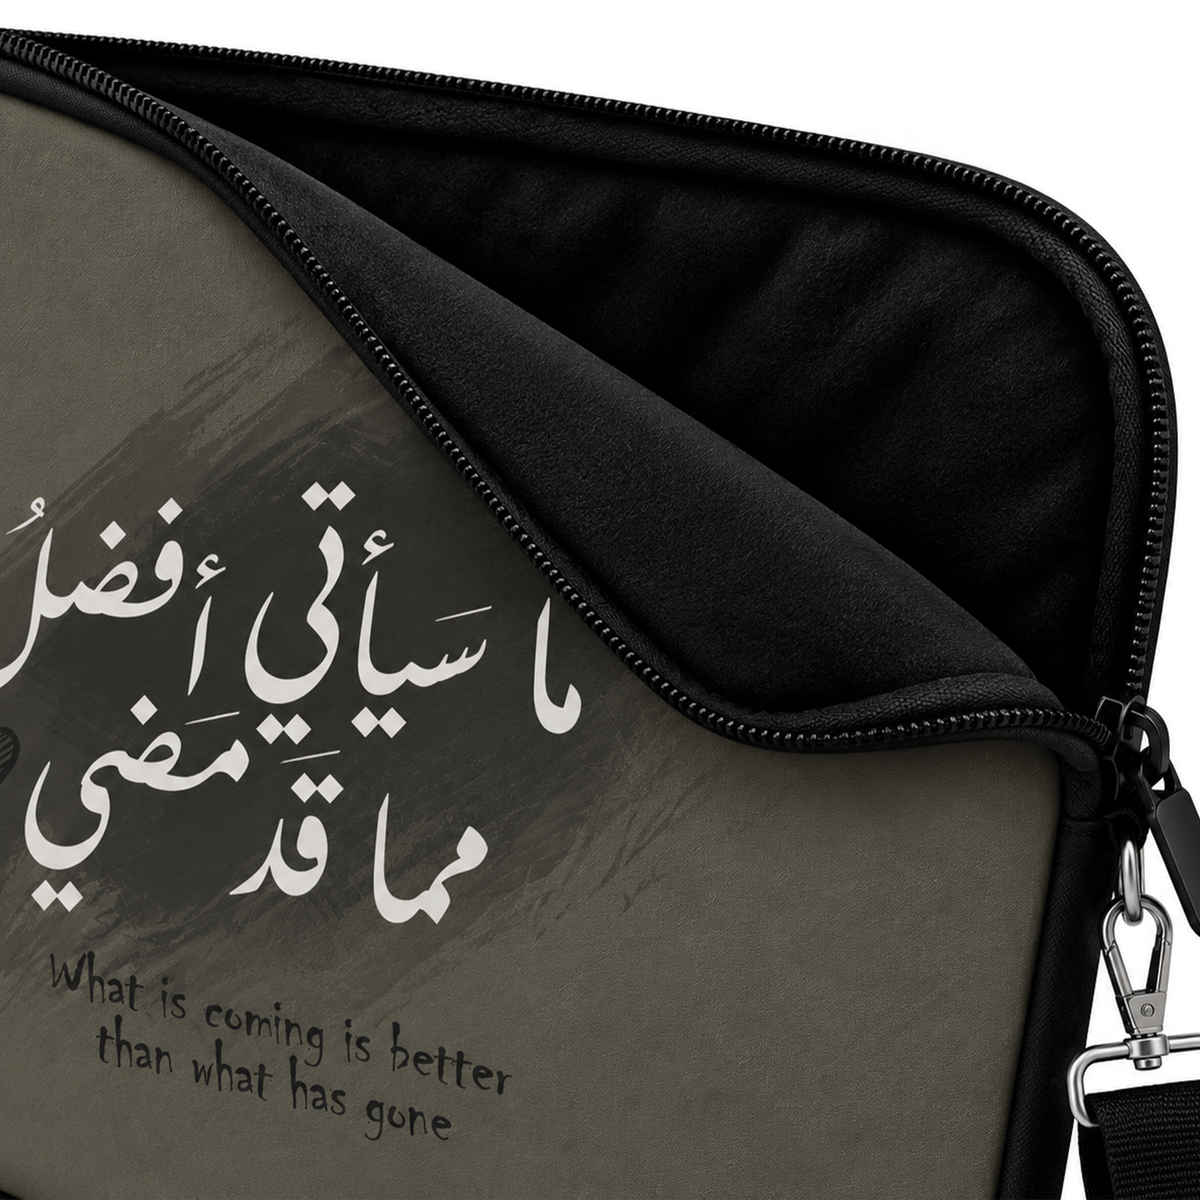 ما سَيأتي أفضلُ
مما قَد مَضي
What is coming is better
than what has gone